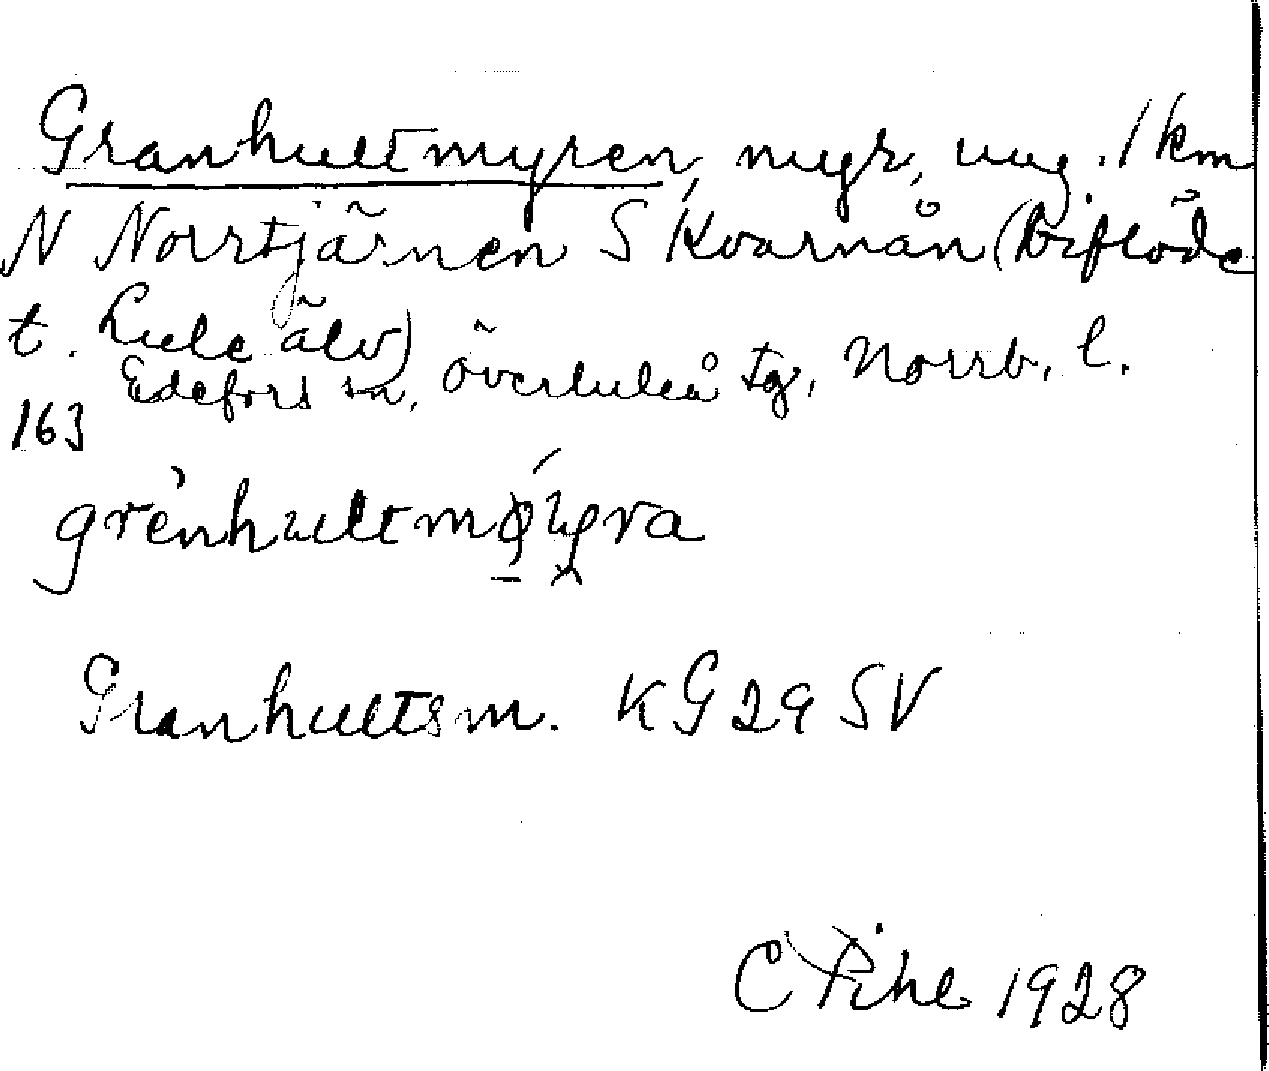 Granhultmyren, myr, ung. 1 km
N Norrtjärnen S Kvarnån (biflöde
t. Lule älv)
Edefors sn, Överluleå tg, Norrb. l.
163
grènhultmǿyra
Granhultsm. KG 29 SV
C Pihl 1928